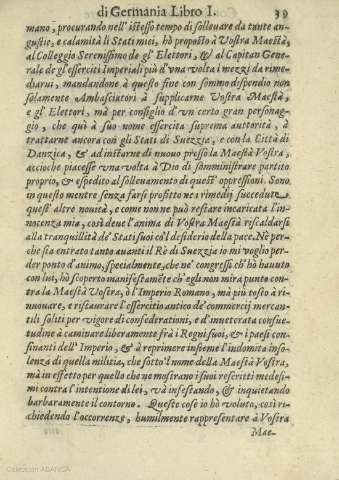 di Germania Libro I. 39
mano, procurando nell'istesso tempo di solleuare da tante an-
gustie, e calamità li Stati miei, hò proposto à Vostra Maestà,
al Colleggio Serenissimo de gl'Elettori, & al Capitan Gene-
rale de gl'esserciti Imperiali più d'vna volta i mezzi da rime-
diarui, mandandone à questo fine con sommo dispendio non
solamente Ambasciatori à supplicarne Vostra Maestà,
e gl'Elettori, mà per consiglio d'vn certo gran personag-
gio, che quà à suo nome essercita suprema auttorità, à
trattarne ancora con gli Stati di Suezzia, e con la Città di
Danzica, & ad instarne di nuouo presso la Maestà Vostra,
acciòche piacesse vna volta à Dio di somministrare partito
proprio, & espedito al solleuamento di quest'oppressioni. Sono
in questo mentre senza farsi profitto ne a rimedij succedute
quest'altre nouità, e come non ne può restare incaricata l'in-
nocenza mia, così deue l'anima di Vostra Maestà riscaldarsi
alla tranquillità de' Stati suoi co'l desiderio della pace. Nè per-
che sia entrato tanto auanti il Rè di Suezzia io mi voglio per-
der ponto d'animo, specialmente, che ne' congressi ch'hò hauuto
con lui, hò scoperto manifestamẽte ch'egli non mira punto con-
tra la Maestà Vostra, ò l'Imperio Romano, mà più tosto à ri-
nuouare, e ristaurare l'essercitio antico de' commercij mercan-
tili soliti per vigore di confederationi, e d'inueterata consue-
tudine à caminare liberamente frà i Regni suoi, & i paesi con-
finanti dell'Imperio, & à reprimere insieme l'indomita inso-
lenza di quella militia, che sotto'l nome della Maestà Vostra,
mà in effetto per quello che ne mostrano i suoi rescritti medesi-
mi contra l'intentione di lei, và infestando, & inquietando
barbaramente il contorno. Queste cose io hò voluto, così ri-
chiedendo l'occorrenze, humilmente rappresentare à Vostra
Mae-
Colección ABANCA